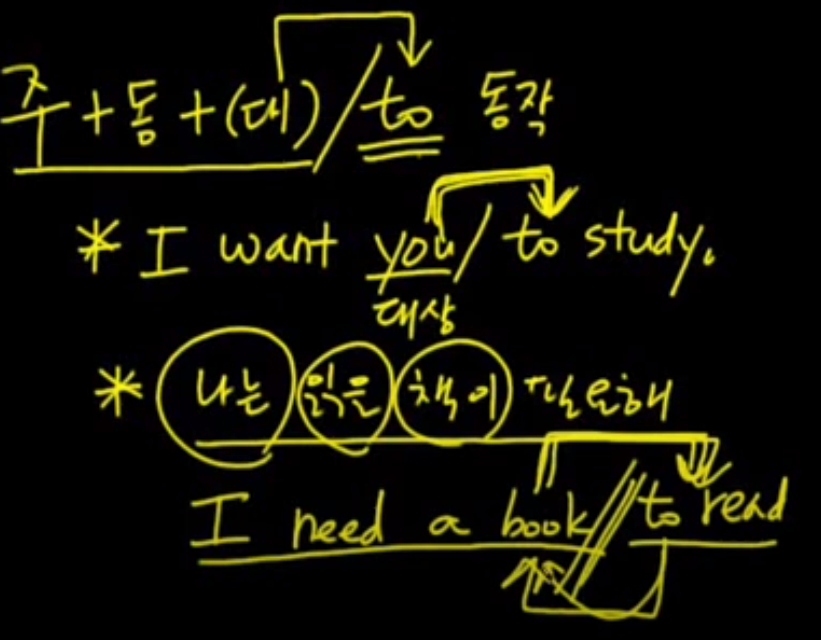 주+동+(대)/to 동작
* I want you/to study.
대상
* 나는 읽을 책이 필요해
I need a book//to read